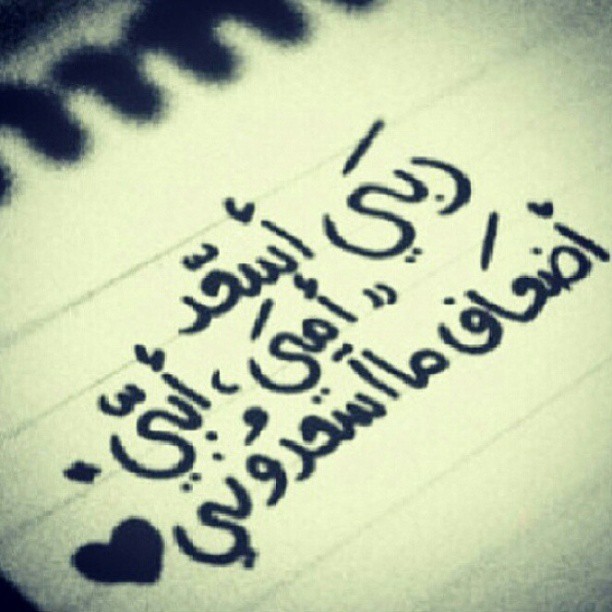 ربيَ أسعّد
" أميَ ، أبيّ .
أضعَاف ما اسعدوُني ♥